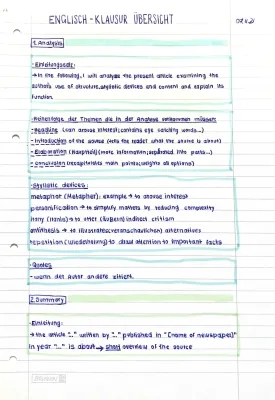 ENGLISCH - KLAUSUR ÜBERSICHT
1. Analysis
- Einleitungssatz:
→ In the following, I will analyze the present article examining the
authors use of structure, stylistic devices and content and explain its
function.
- Reihenfolge der Themen die in der Analyse vorkommen müssen:
- Heading (can arouse interest; contains eye catching words...)
- Introduction of the source (tells the reader what the source is about)
- Elaboration (Hauptteil) (more information; separated into parts...)
- Conclusion (recapitulates main points; weighs all options)
- Stylistic devices:
metaphor (Metapher): example → to arouse interest
personification → to simplify matters by reducing complexity
irony (Ironie) → to utter (äußern) indirect critism
antithesis → to illustrate (veranschaulichen) alternatives
repetition (Wiederholung) → to draw attention to important facts
- Quotes
- wenn der Autor andere zitiert.
2. Summary
- Einleitung:
→ the article "..." written by "..." published in "[name of newspaper]"
in year "..." is about → short overview of the source